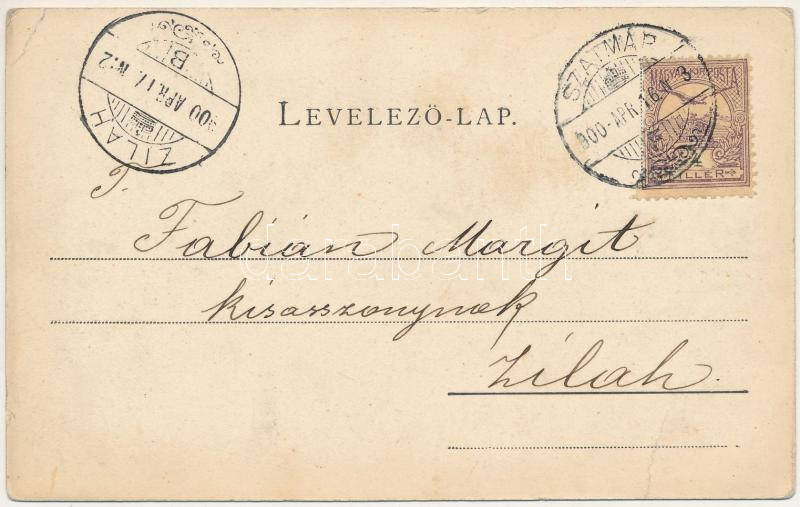 ZILAH
900 APR. 17. N:2
B
SZATMÁR
900-APR. 16.
3
MAGYAR POSTA
LLÉR
LEVELEZŐ-LAP.
T.
Fabián Margit
kisasszonynak
Zilah.
darabanth